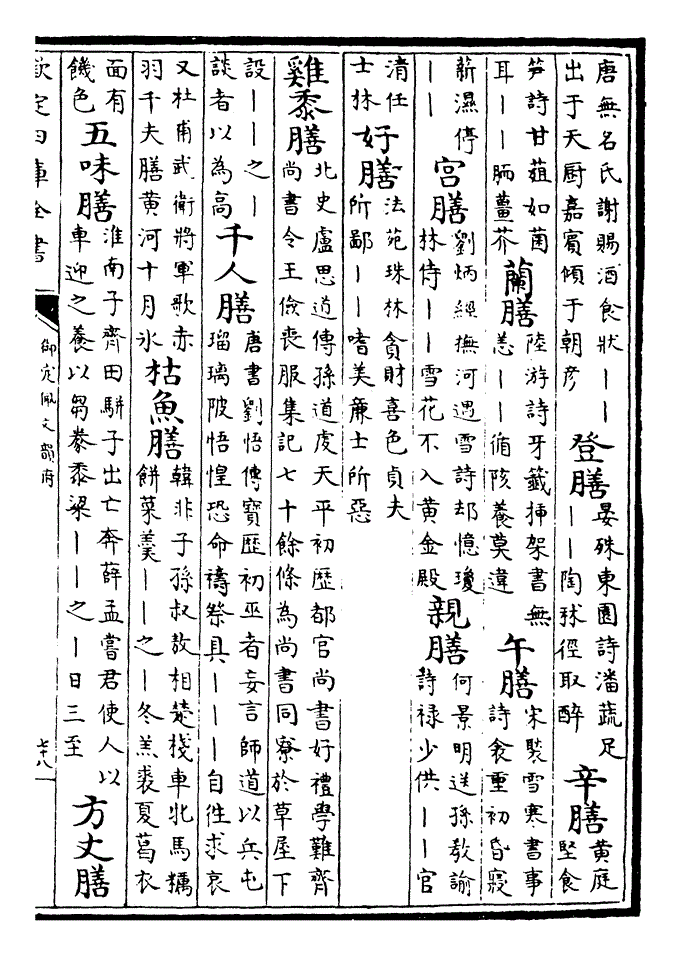 唐無名氏謝賜酒食狀丨丨出于天厨嘉賓傾于朝彦 登膳 晏殊東園詩潘蔬足丨丨陶秫徑取醉 辛膳 黄庭堅食
笋詩甘葅如菌耳丨丨腼薑芥 蘭膳 陸游詩牙籤揷架書無恙丨丨循陔養莫違 午膳 宋褧雪寒書事詩衾重初昏寢
蕲濕停丨丨 宫膳 劉炳經撫河遇雪詩却憶瓊林侍丨丨雪花不入黄金殿 親膳 何景明送孫教諭詩禄少供丨丨官
清任士林 好膳 法苑珠林貪財喜色貞夫所鄙丨丨嗜美廉士所惡
雞黍膳 北史盧思道傳孫道虔天平初歴都官尚書好禮學難齊尚書令王儉喪服集記七十餘條為尚書同寮於草屋下
設丨丨之丨談者以為高 千人膳 唐書劉悟傳寳歴初巫者妄言師道以兵屯瑠璃陂悟惶恐命禱祭具丨丨丨自徃求哀
又杜甫武衛將軍歌赤羽千夫膳黄河十月氷 枯魚膳 韓非子孫叔敖相楚棧車牝馬糲餅菜羮丨丨之丨冬羔裘夏葛衣
面有饑色 五味膳 淮南子齊田駢子出亡奔薛孟嘗君使人以車迎之養以芻豢黍粱丨丨之丨日三至 方丈膳
欽定四庫全書
御定佩文韻府